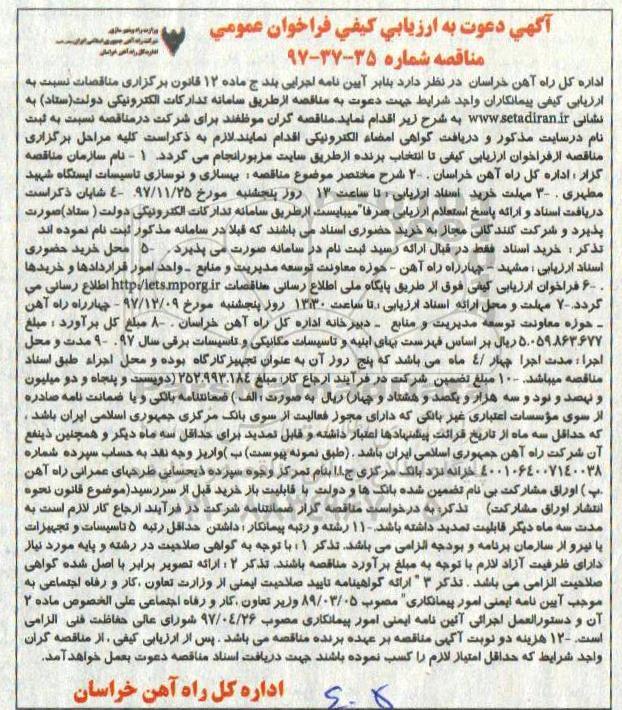 آگهي دعوت به ارزيابي كيفي فراخوان عمومي
مناقصه شماره ۳۵-۳۷-۹۷
وزارت راه و شهرسازی
شرکت راه آهن جمهوری اسلامی ایران
اداره کل راه آهن خراسان
اداره کل راه آهن خراسان در نظر دارد بنابر آیین نامه اجرایی بند ج ماده ۱۲ قانون برگزاری مناقصات نسبت به
ارزیابی کیفی پیمانکاران واجد شرایط جهت دعوت به مناقصه ازطریق سامانه تدارکات الکترونیکی دولت(ستاد) به
نشانی www.setadiran.ir به شرح زیر اقدام نماید.مناقصه گران موظفند برای شرکت درمناقصه نسبت به ثبت
نام درسایت مذکور و دریافت گواهی امضاء الکترونیکی اقدام نمایند.لازم به ذکراست کلیه مراحل برگزاری
مناقصه ازفراخوان ارزیابی کیفی تا انتخاب برنده ازطریق سایت مزبورانجام می گردد. ۱- نام سازمان مناقصه
گزار : اداره کل راه آهن خراسان . ۲- شرح مختصر موضوع مناقصه : بهسازی و نوسازی تاسیسات ایستگاه شهید
مطهری . ۳- مهلت خرید اسناد ارزیابی : تا ساعت ۱۳ روز پنجشنبه مورخ ۹۷/۱۱/۲۵ ۴- شایان ذکراست
دریافت اسناد و ارائه پاسخ استعلام ارزیابی صرفا"میبایست ازطریق سامانه تدارکات الکترونیکی دولت ( ستاد)صورت
پذیرد و شرکت کنندگانی مجاز به خرید حضوری اسناد می باشند که قبلا در سامانه مذکور ثبت نام نموده اند
تذکر : خرید اسناد فقط در قبال ارائه رسید ثبت نام در سامانه صورت می پذیرد . ۵- محل خرید حضوری
اسناد ارزیابی : مشهد - چهارراه راه آهن - حوزه معاونت توسعه مدیریت و منابع - واحد امور قراردادها و خریدها
. ۶- فراخوان ارزیابی کیفی فوق از طریق پایگاه ملی اطلاع رسانی مناقصات http:/iets.mporg.ir اطلاع رسانی می
گردد.۷- مهلت و محل ارائه اسناد ارزیابی : تا ساعت ۱۳:۳۰ روز پنجشنبه مورخ ۹۷/۱۲/۰۹ - چهارراه راه آهن
- حوزه معاونت توسعه مدیریت و منابع - دبیرخانه اداره کل راه آهن خراسان . ۸- مبلغ کل برآورد : مبلغ
۵.۰۵۹.۸۶۳.۶۷۷ ریال بر اساس فهرست بهای ابنیه و تاسیسات مکانیکی و تاسیسات برقی سال ۹۷ . ۹- مدت و محل
اجرا : مدت اجرا چهار /۴ ماه می باشد که پنج روز آن به عنوان تجهیزکارگاه بوده و محل اجراء طبق اسناد
مناقصه میباشد. ۱۰- مبلغ تضمین شرکت در فرآیند ارجاع کار: مبلغ ۲۵۲.۹۹۳.۱۸۴ (دویست و پنجاه و دو میلیون
و نهصد و نود و سه هزار و یکصد و هشتاد و چهار) ریال به صورت : الف ) ضمانتنامه بانکی و یا ضمانت نامه صادره
از سوی مؤسسات اعتباری غیر بانکی که دارای مجوز فعالیت از سوی بانک مرکزی جمهوری اسلامی ایران باشد .
که حداقل سه ماه از تاریخ قرائت پیشنهادها اعتبار داشته و قابل تمدید برای حداقل سه ماه دیگر و همچنین ذینفع
آن شرکت راه آهن جمهوری اسلامی ایران باشد . (طبق نمونه پیوست) ب )واریز وجه نقد به حساب سپرده شماره
۴۰۰۱۰۶۴۰۰۷۱۴۰۰۳۸ خزانه نزد بانک مرکزی ج.ا.ا بنام تمرکز وجوه سپرده ذیحسابی طرحهای عمرانی راه آهن
.پ ) اوراق مشارکت بی نام تضمین شده بانک ها و دولت با قابلیت باز خرید قبل از سررسید(موضوع قانون نحوه
انتشار اوراق مشارکت) تذکر: به درخواست مناقصه گزار ضمانتنامه شرکت در فرآیند ارجاع کار لازم است به
مدت سه ماه دیگر قابلیت تمدید داشته باشد. ۱۱- رشته و رتبه پیمانکار : داشتن حداقل رتبه ۵ تاسیسات و تجهیزات
یا نیرو از سازمان برنامه و بودجه الزامی می باشد. تذکر ۱ : با توجه به گواهی صلاحیت در رشته و پایه مورد نیاز
دارای ظرفیت آزاد لازم با توجه به مبلغ برآورد مناقصه باشند. تذکر ۲ : ارائه تصویر برابر با اصل شده گواهی
صلاحیت الزامی می باشد . تذکر ۳ " ارائه گواهینامه تایید صلاحیت ایمنی از وزارت تعاون ،کار و رفاه اجتماعی به
موجب آیین نامه ایمنی امور پیمانکاری" مصوب ۸۹/۰۳/۰۵ وزیر تعاون ،کار و رفاه اجتماعی علی الخصوص ماده ۲
آن و دستورالعمل اجرائی آئین نامه ایمنی امور پیمانکاری مصوب ۹۷/۰۴/۲۶ شورای عالی حفاظت فنی الزامی
است. ۱۲- هزینه دو نوبت آگهی مناقصه بر عهده برنده مناقصه می باشد . پس از ارزیابی کیفی ، از مناقصه گران
واجد شرایط که حداقل امتیاز لازم را کسب نموده باشند جهت دریافت اسناد مناقصه دعوت بعمل خواهدآمد.
اداره کل راه آهن خراسان